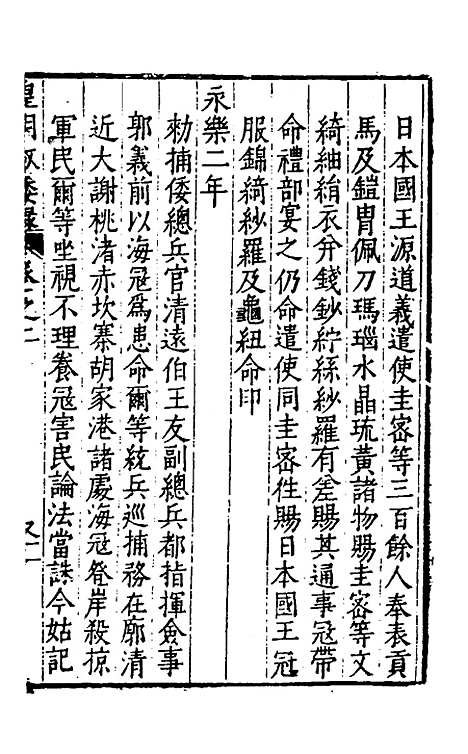 日本國王源道義遣使圭密等三百餘人奉表貢
馬及鎧冑佩刀瑪瑙水晶琉黃諸物賜圭密等文
綺紬絹衣并錢鈔紵絲紗羅有差賜其通事冠帶
命禮部宴之仍命遣使同圭密徃賜日本國王冠
服錦綺紗羅及龜紐命印
永樂二年
勑捕倭總兵官清遠伯王友副總兵都指揮僉事
郭義前以海冦爲患命爾等統兵巡捕務在廓清
近大謝桃渚赤坎寨胡家港諸處海冦登岸殺掠
軍民爾等坐視不理養冦害民論法當誅今姑記
卷之二
又二